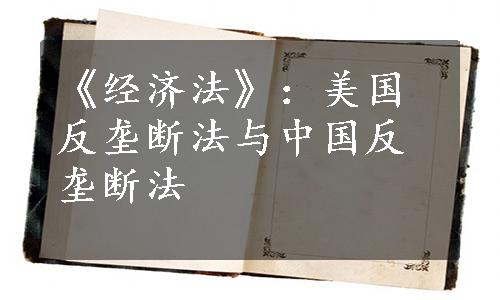 《经济法》：美国
反垄断法与中国反
垄断法